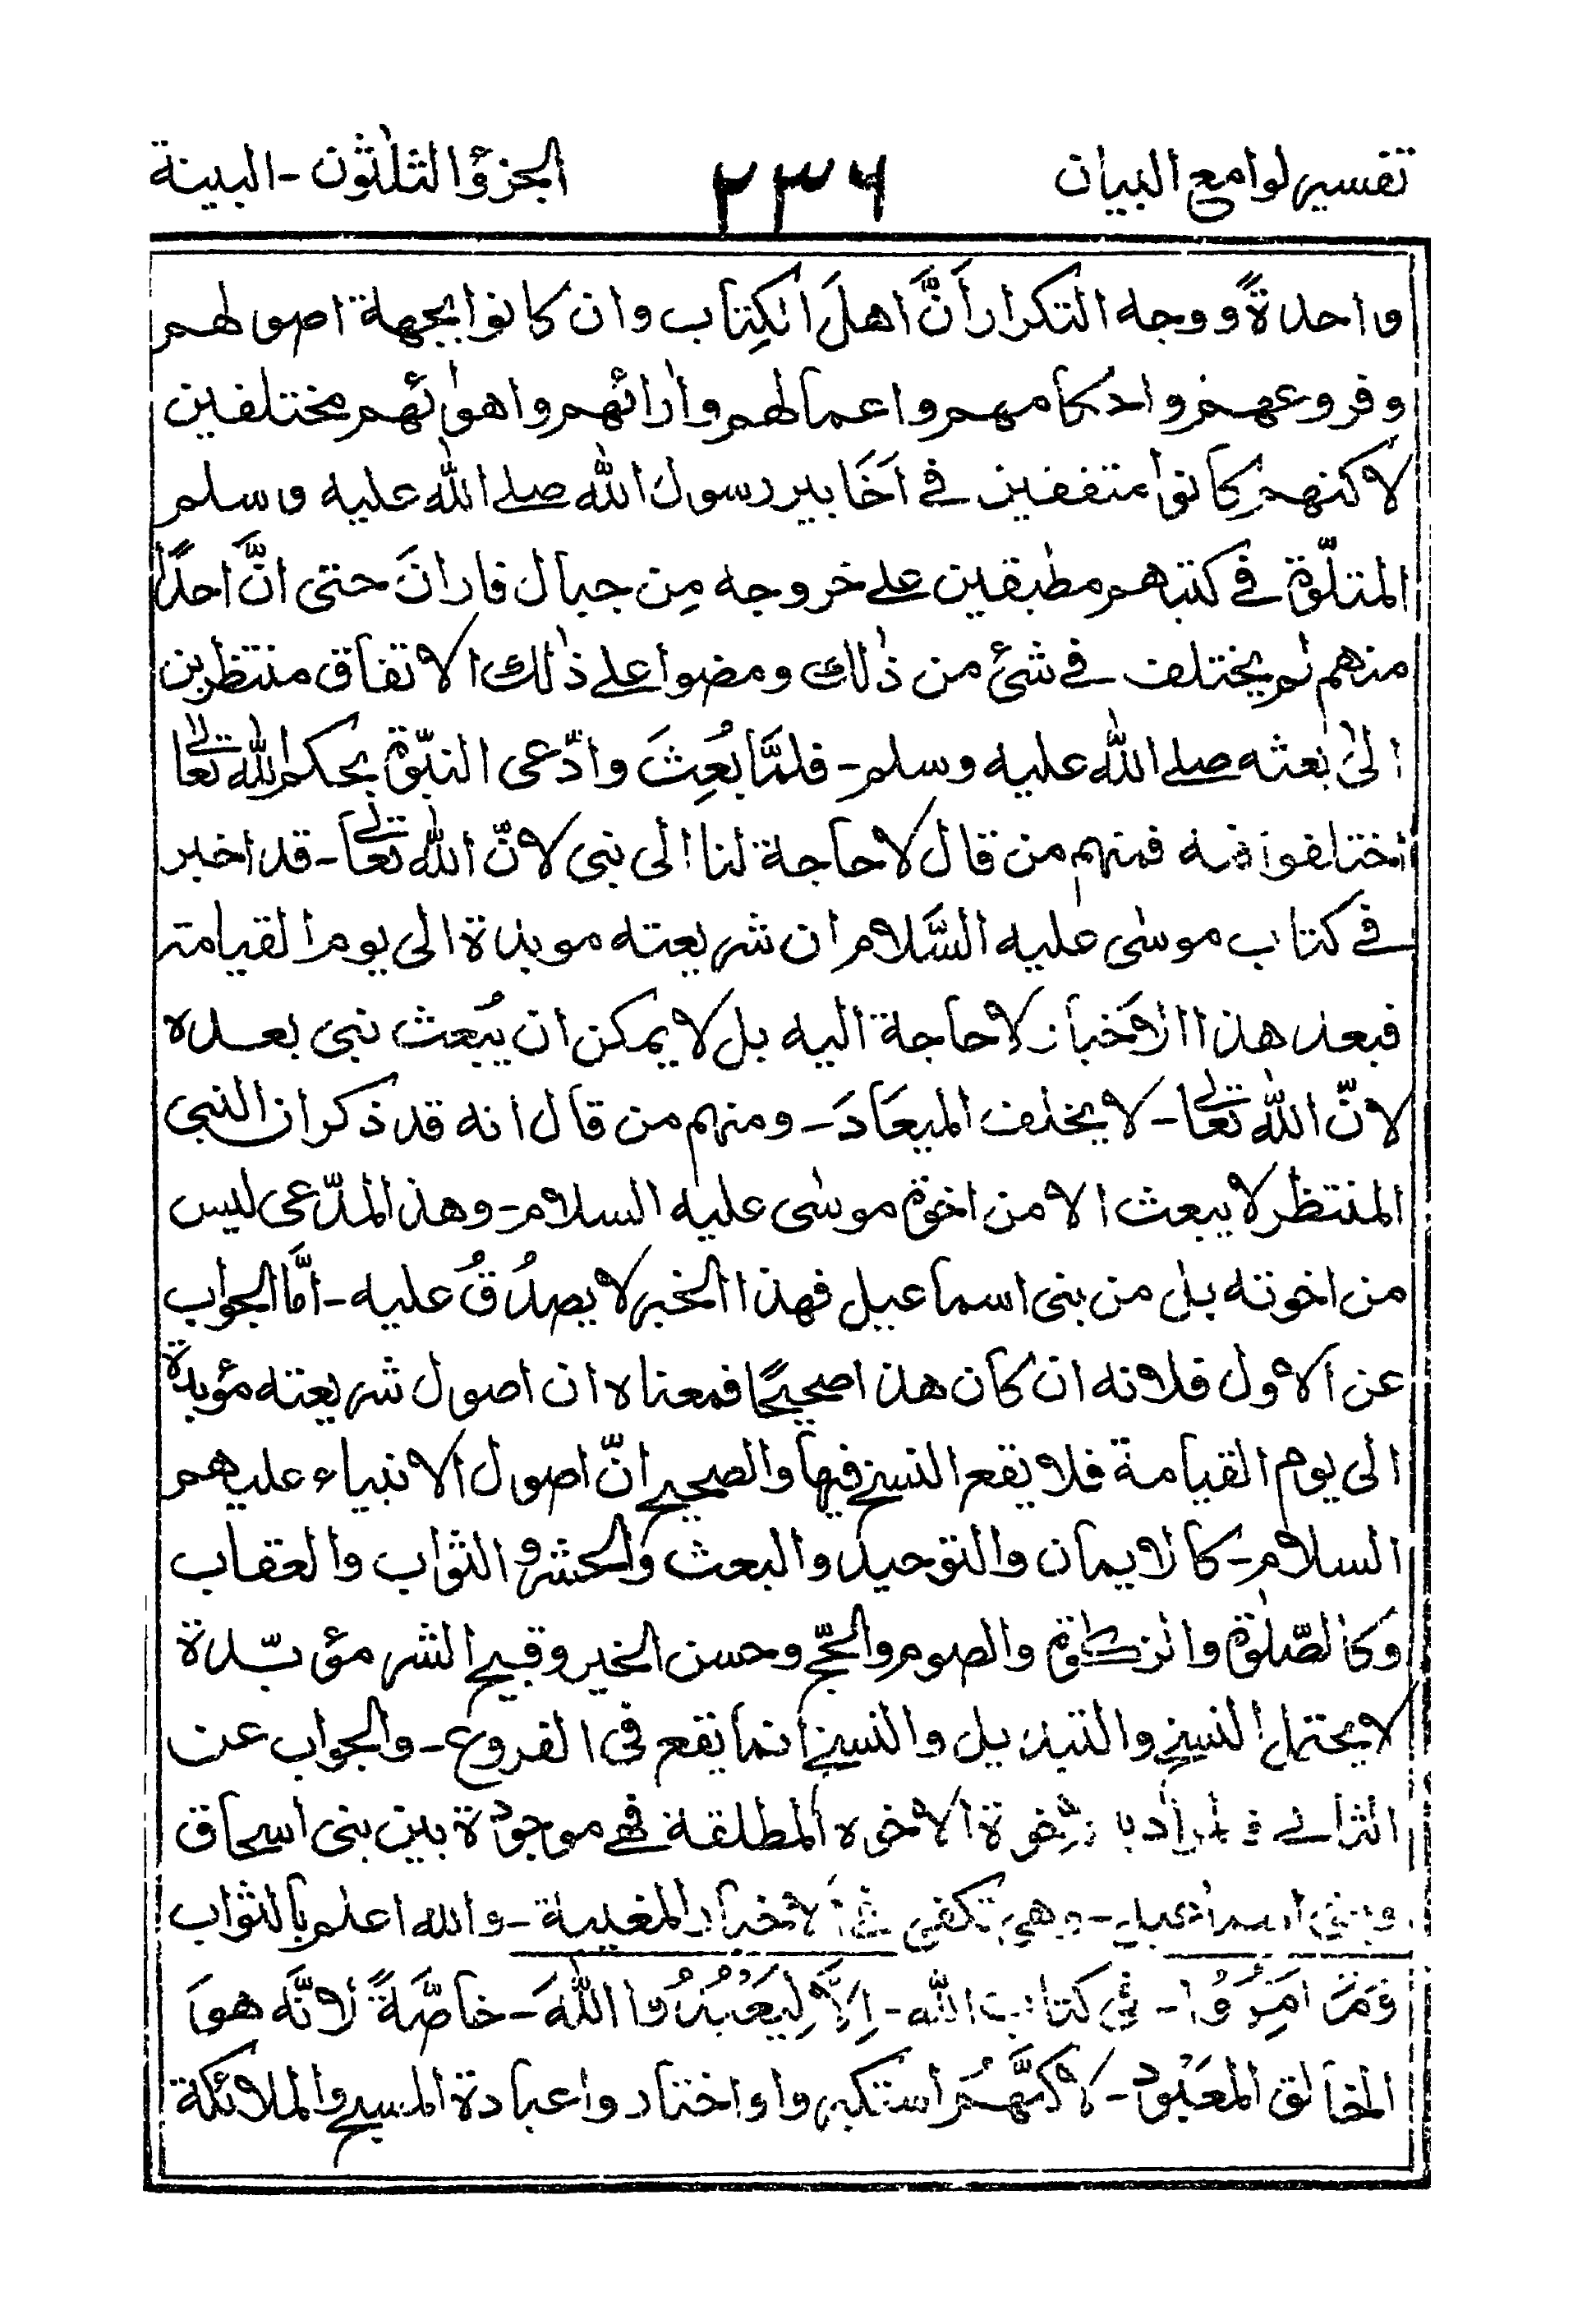 تفسير لوامع البيان ٢٣٦ الجزؤ الثلٰثون-البينة
واحدةً ووجه التكرار أنَّ اهلَ الكِتاب وان كانوا بجهة اصولهم
وفروعهم واحكامهم واعمالهم واٰرائهم واهوٰئهم مختلفين
لاكنهم كانوا متفقين في اَخَابير رسول الله صلے الله عليه وسلم
المتلوّة في كتبهم مطبقين علے خروجه مِن جبال فارانَ حتى انَّ احدًا
منهم لم يختلف في شئ من ذٰلك ومضوا علے ذٰلك الاتفاق منتظرين
الىٰ بعثه صلے الله عليه وسلم- فلمَّا بُعِثَ وادّعى النبوّة بحكم الله تعالىٰ
اختلفوا فيه فمنهم من قال لاحاجة لنا الى نبى لانّ الله تعالىٰ-قد اخبر
في كتاب موسٰى عليه السَّلام ان شريعته موبدة الى يوم القيامة
فبعد هذا الاَخبار لاحاجة اليه بل لا يمكن ان يُبعث نبى بعده
لانّ الله تعالىٰ- لا يخلف الميعَادَ- ومنهم من قال انه قد ذكر ان النبي
المنتظر لا يبعث الا من اخوة موسٰى عليه السلام-وهذ المدّعى ليس
من اخوته بل من بنى اسماعيل فهذا الخبر لا يصدُقُ عليه-امَّا الجواب
عن الاول فلانه ان كان هذا صحيحًا فمعناه ان اصول شريعته مؤبدة
الى يوم القيامة فلا يقع النسخ فيها والصحيح انّ اصول الانبياء عليهم
السلام-كالايمان والتوحيد والبعث والحشر و الثواب والعقاب
وكالصّلوٰة والزكوٰة والصوم والحجّ وحسن الخير وقبح الشر مؤبّدة
لا يحتمل النسخ والتبديل والنسخ انما يقع فى الفروع-والجواب عن
الثانے فالمراد بالاخوة الاخوه المطلقة فهے موجودة بين بنى اسحاق
وبنى اسماعيل-وهى تكفى فى الاخبار المغيبة-والله اعلم بالثواب
وَمَا اُمِرُوا- فى كتاب الله- اِلَّا لِيَعْبُدُوا اللهَ-خاصَّةً لانَّه هوَ
الخالق المعَبْود-لاكنَّهُم استكبروا واختاروا عبادة المسيح والملائكة